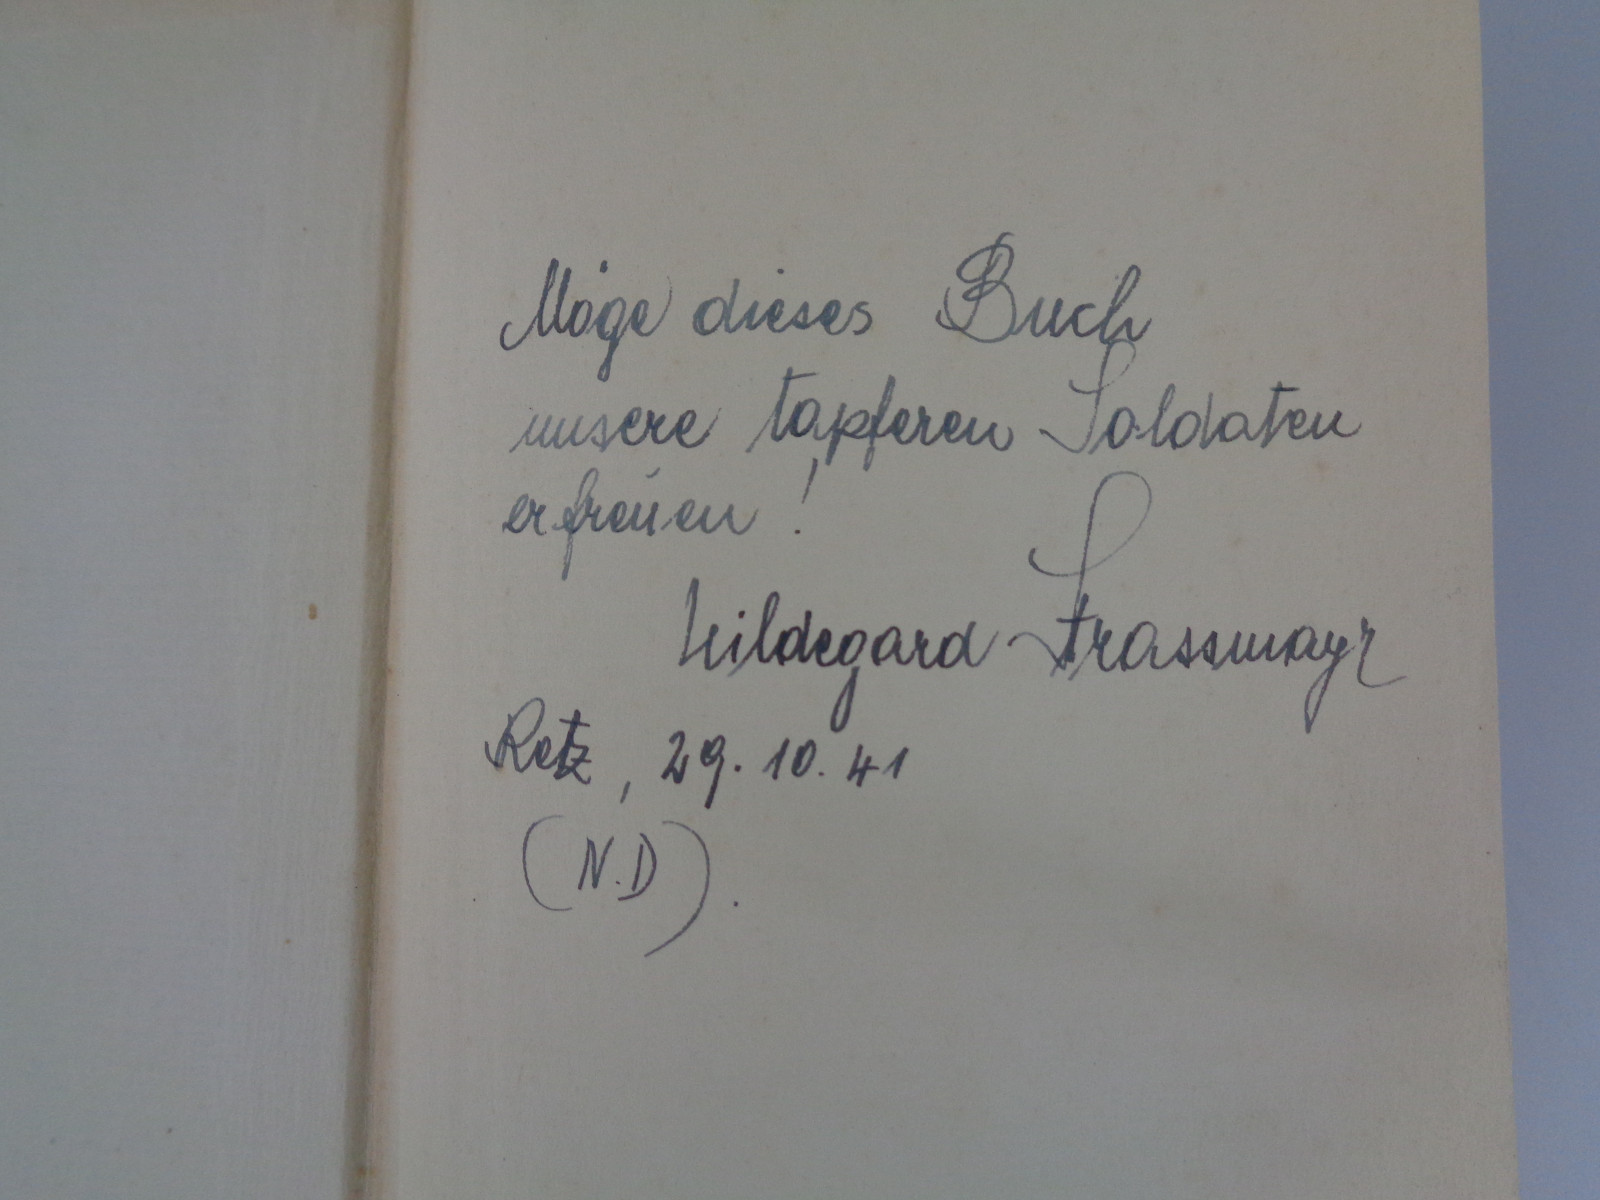 Möge dieses Buch
unsere tapferen Soldaten
erfreuen!
Hildegard Strassmayr
Retz, 29.10.41
(N.D).